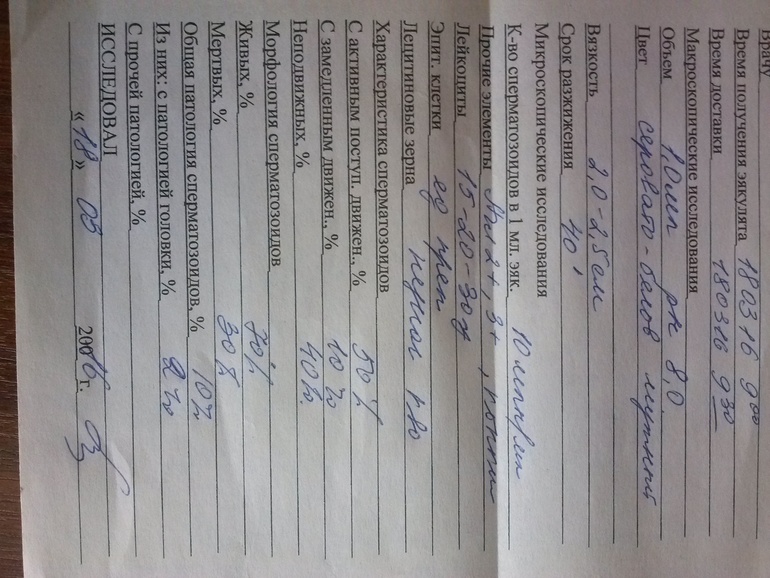 Врачу
Время получения эякулята 180316 9 00
Время доставки 180316 9 30
Макроскопические исследования
Объем 1,0 мл рн 8,0
Цвет серовато-белов мутный
Вязкость 2,0-2,5 см
Срок разжижения 40'
Микроскопические исследования
К-во сперматозоидов в 1 мл. эяк. 10
Прочие элементы 2+, 3+,
Лейкоциты 15-20-30
Эпит. клетки ед преп
Лецитиновые зерна немног
Характеристика сперматозоидов
С активным поступ. движен., % 50 %
С замедленным движен., % 10 %
Неподвижных, % 40 %
Морфология сперматозоидов
Живых, % 70 %
Мертвых, % 30 %
Общая патология сперматозоидов, % 10 %
Из них: с патологией головки, % 2 %
С прочей патологией, %
ИССЛЕДОВАЛ
«18» 03 200 16 г.